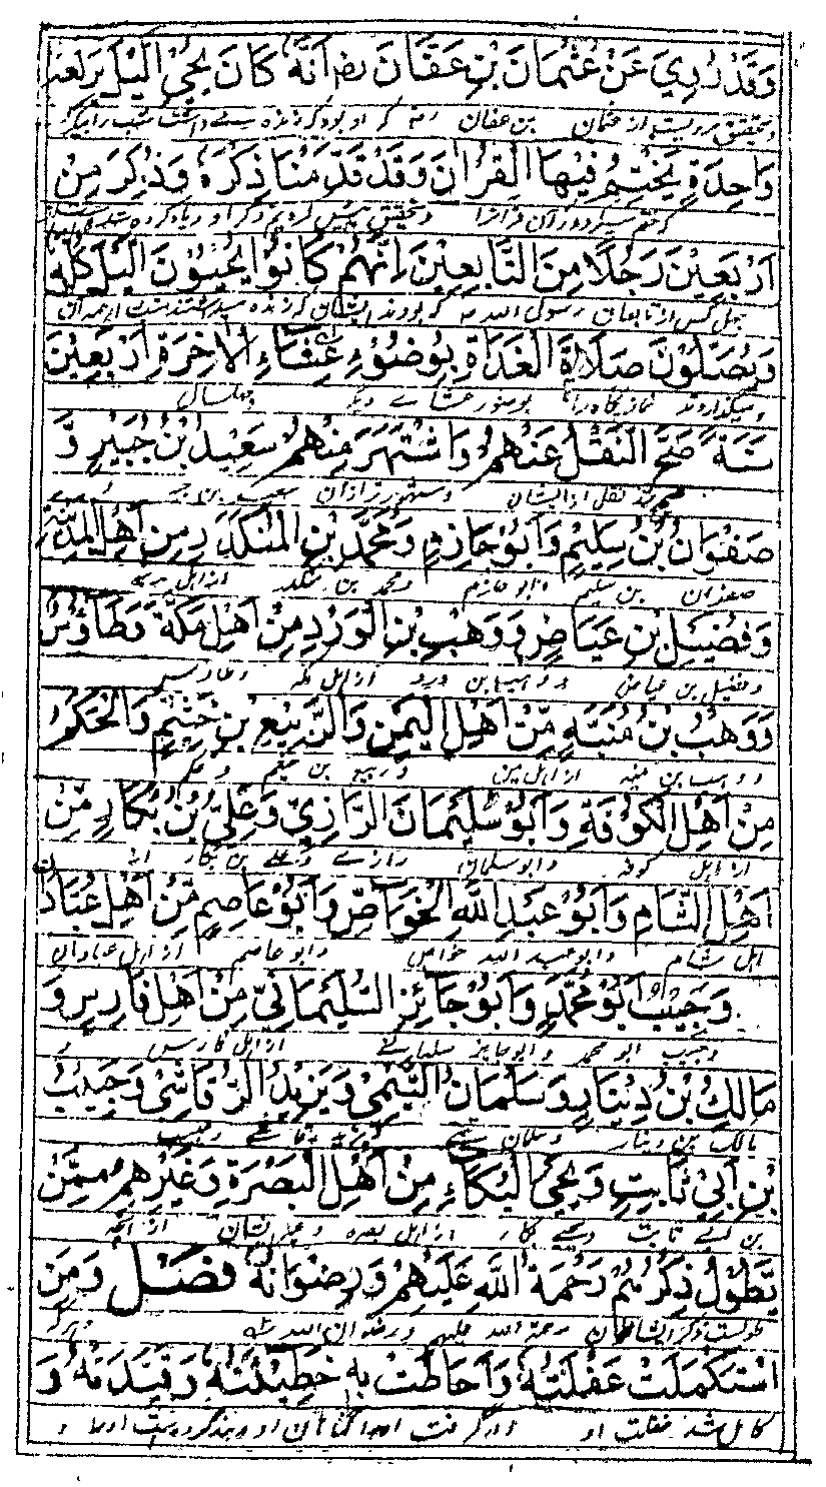 وَقَدْ رُوِيَ عَنْ عُثْمَانَ بْنِ عَفَّانَ رض اَنَّهُ كَانَ يُحْيِي اللَّيْلَ بِرَكْعَةٍ
وَاحِدَةٍ يَخْتِمُ فِيْهَا الْقُرْآنَ وَقَدْ قَدَّمْنَا ذِكْرَهُ وَذُكِرَ مِنْ
اَرْبَعِيْنَ رَجُلًا مِنَ التَّابِعِيْنَ اِنَّهُمْ كَانُوْا يُحْيُوْنَ اللَّيْلَ كُلَّهُ
چہل کس از تابعان رسول الله كه بودند ایشان كه زنده میداشتند شب
وَيُصَلُّوْنَ صَلَاةَ الْغَدَاةِ بِوُضُوْءِ عِشَاءِ الْاٰخِرَةِ اَرْبَعِيْنَ
ومیگذاردند نماز بوضوء عشاے دیگر چهل سال
سَنَةً صَحَّ النَّقْلُ عَنْهُمْ وَاشْتَهَرَ مِنْهُمْ سَعِيْدُ بْنُ جُبَيْرٍ وَّ
صحیح شد نقل از ایشان ومشهور تر ازان سعید بن
صَفْوَانُ بْنُ سُلَيْمٍ وَاَبُوْ حَازِمٍ وَمُحَمَّدُ بْنِ الْمُنْكَدِرِ مِنْ اَهْلِ الْمَدِيْنَةِ
صفوان بن سلیم وابو حازم ومحمد بن منکدر از اهل مدینه
وَفُضَيْلُ بْنِ عَيَاضٍ وَوَهْبِ بْنِ الْوَرْدِ مِنْ اَهْلِ مَكَّةَ وَطَاؤُسُ
وفضیل بن عیاض ووهب بن ورد از اهل مکه وطاوس
وَوَهْبُ بْنُ مُنَبِّهٍ مِّنْ اَهْلِ الْيَمَنِ وَالرَّبِيْعِ بْنِ خَيْثَمٍ وَالْحَكَمُ
ووهب بن منبه از اهل یمن وربیع بن خیثم وحکم
مِنْ اَهْلِ الْكُوْفَةِ وَاَبُوْ سُلَيْمَانَ الرَّازِيِّ وَعَلِيِّ بْنُ بُكَّارٍ مِّنْ
از اهل كوفه وابو سلمان رازے وعلے بن بکار از
اَهْلِ الشَّامِ وَاَبُوْ عَبْدِ اللَّهِ الْخَوَّاصِ وَاَبُوْ عَاصِمٍ مِّنْ اَهْلِ عُبَّادَانَ
اهل شام وابو عبد الله خواص وابو عاصم از اهل عبادان
وَحَبِيْبُ اَبُوْ مُحَمَّدٍ وَاَبُوْ جَائِزِ السُّلَيْمَانِيِّ مِنْ اَهْلِ فَارِسٍ وَ
وحبیب ابو محمد وابو جایز سلیمانے از اهل فارس و
مَالِكُ بْنُ دِيْنَارٍ وَسَلْمَانُ التَّيْمِيْ وَيَزِيْدُ الرُّقَاشِيْ وَحَبِيْبُ
مالک بن دینار وسلمان تیمے ویزید رقاشے وحبیب
بْنِ اَبِيْ ثَابِتٍ وَيَحْيَى الْبَكَّاءِ مِنْ اَهْلِ الْبَصْرَةِ وَغَيْرِهِمْ مِمَّنْ
بن ابے ثابت ویحیے بکا ر از اهل بصره وغیر ایشان از آنچه
يَّطُوْلُ ذِكْرُهُمْ رَحْمَةُ اللَّهِ عَلَيْهِمْ وَرِضْوَانُهُ فَصْلٌ وَمَنِ
طول است ذکر ایشان رحمة الله علیهم ورضوان الله وهر که
اسْتَكْمَلَتْ غَفْلَتُهُ وَاَحَاطَتْ بِهِ خَطِيْئَتُهُ وَقَيَّدَتْهُ وَ
کامل شد غفلت او گرفت او را گناهان او و